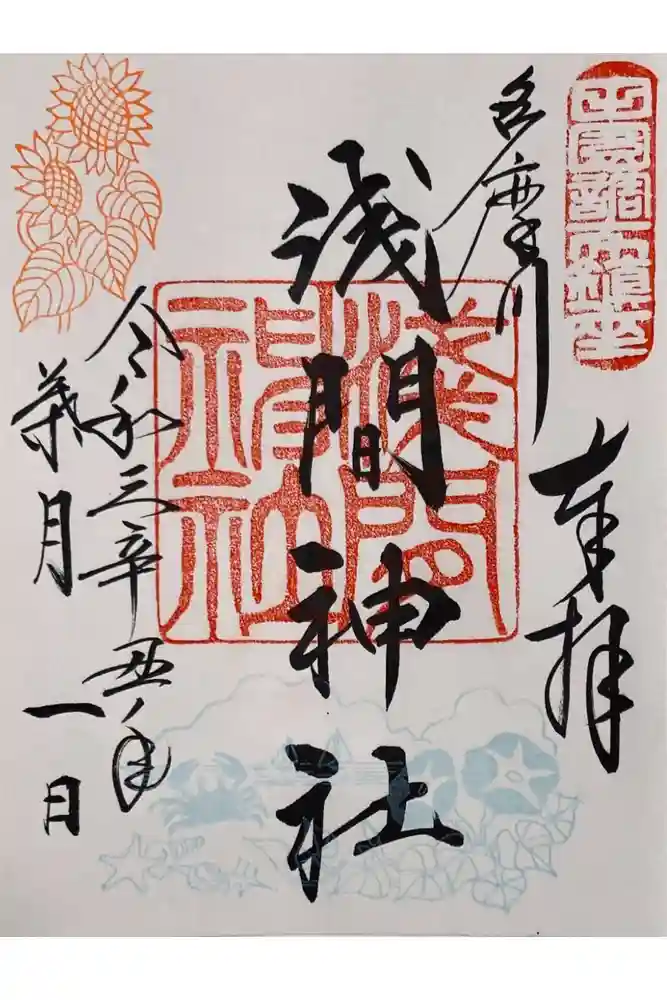 田園調布鎮座
奉拝
多摩川
浅間神社
淺間
神社
令和三辛丑年
葉月一日